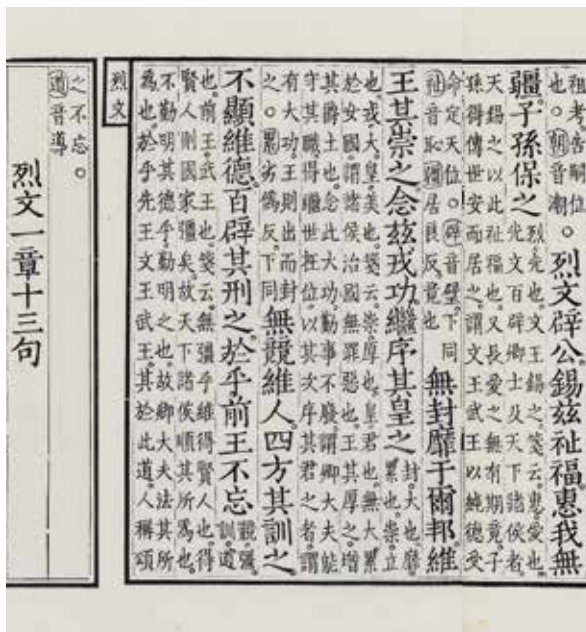 祖考告嗣位
也。朝音潮○烈文辟公錫茲祉福惠我無
疆子孫保之烈光也。文王錫之。箋云。惠愛也。
光文百辟卿士及天下諸侯者。
天錫之以此祉福也。又長愛之無有期竟。子
孫得傳世安而居之。謂文王武王以純德受
命定天位。○辟音璧。下同
祉音恥疆居良反。竟也無封靡于爾邦維
王其崇之念茲戎功繼序其皇之封大也。靡
累也。崇立
也。戎大。皇美也。箋云。崇厚也。皇君也。無大累
於女國。謂諸侯治國無罪惡也。王其厚之。增
其爵土也。念此大功。勤事不廢。謂卿大夫能
守其職。得繼世在位。以其次序其君之者。謂
有大功。王則出而封
之。○累劣偽反。下同無競維人四方其訓之
不顯維德百辟其刑之於乎前王不忘競彊。
訓道
也。前王。武王也。箋云。無彊乎維得賢人也。得
賢人則國家彊矣。故天下諸侯順其所為也。
不勤明其德乎。勤明之也。故卿大夫法其所
為也。於乎先王。文王武王。其於此道。人稱頌
烈文
之不忘。
道音導
烈文一章十三句